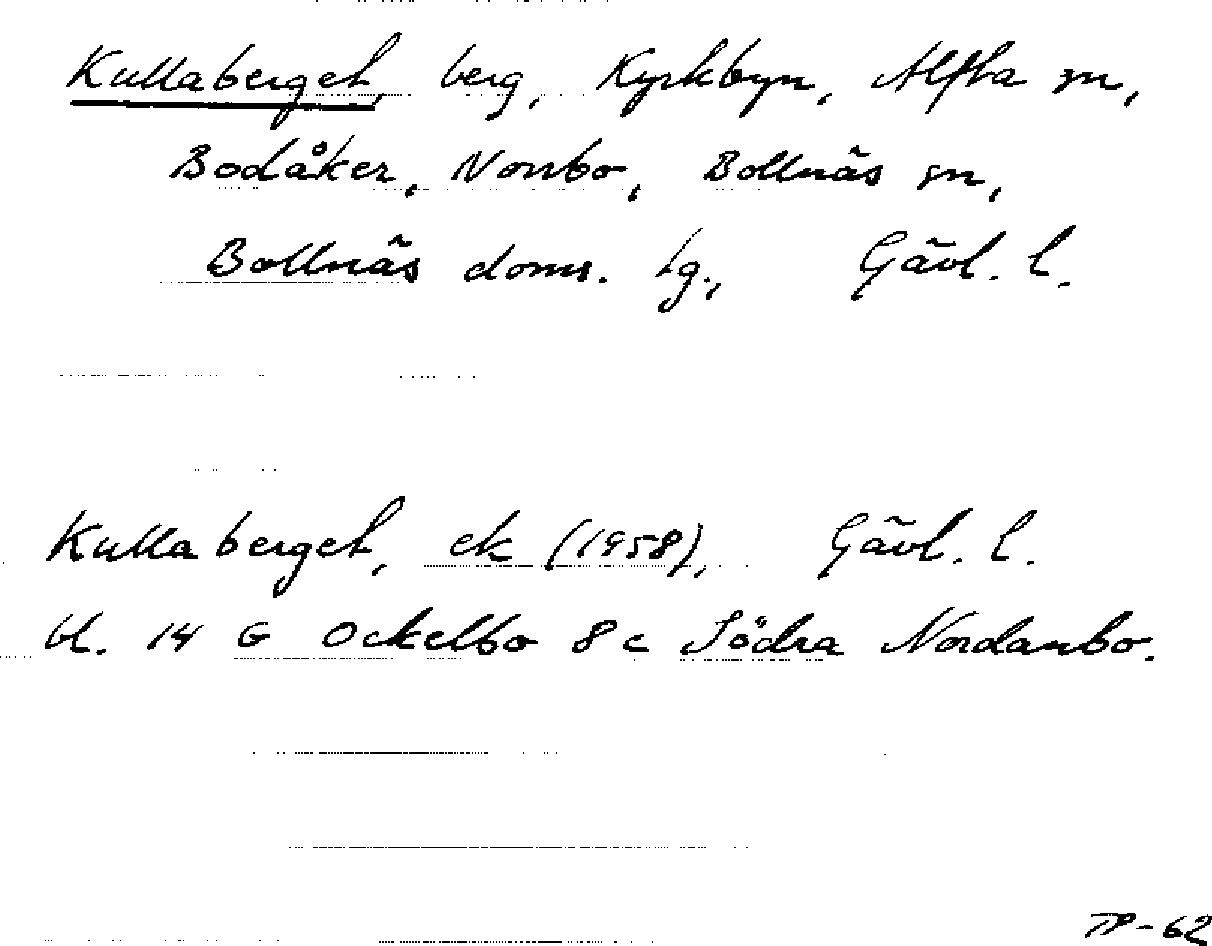 Kullaberget, berg, Kyrkbyn, Alfta sn,
Bodåker, Norrbo, Bollnäs sn,
Bollnäs doms. tg., Gävl. l.
Kullaberget, ek (1958), Gävl. l.
bl. 14 G Ockelbo 8 c Södra Nordanbo.
TP-62